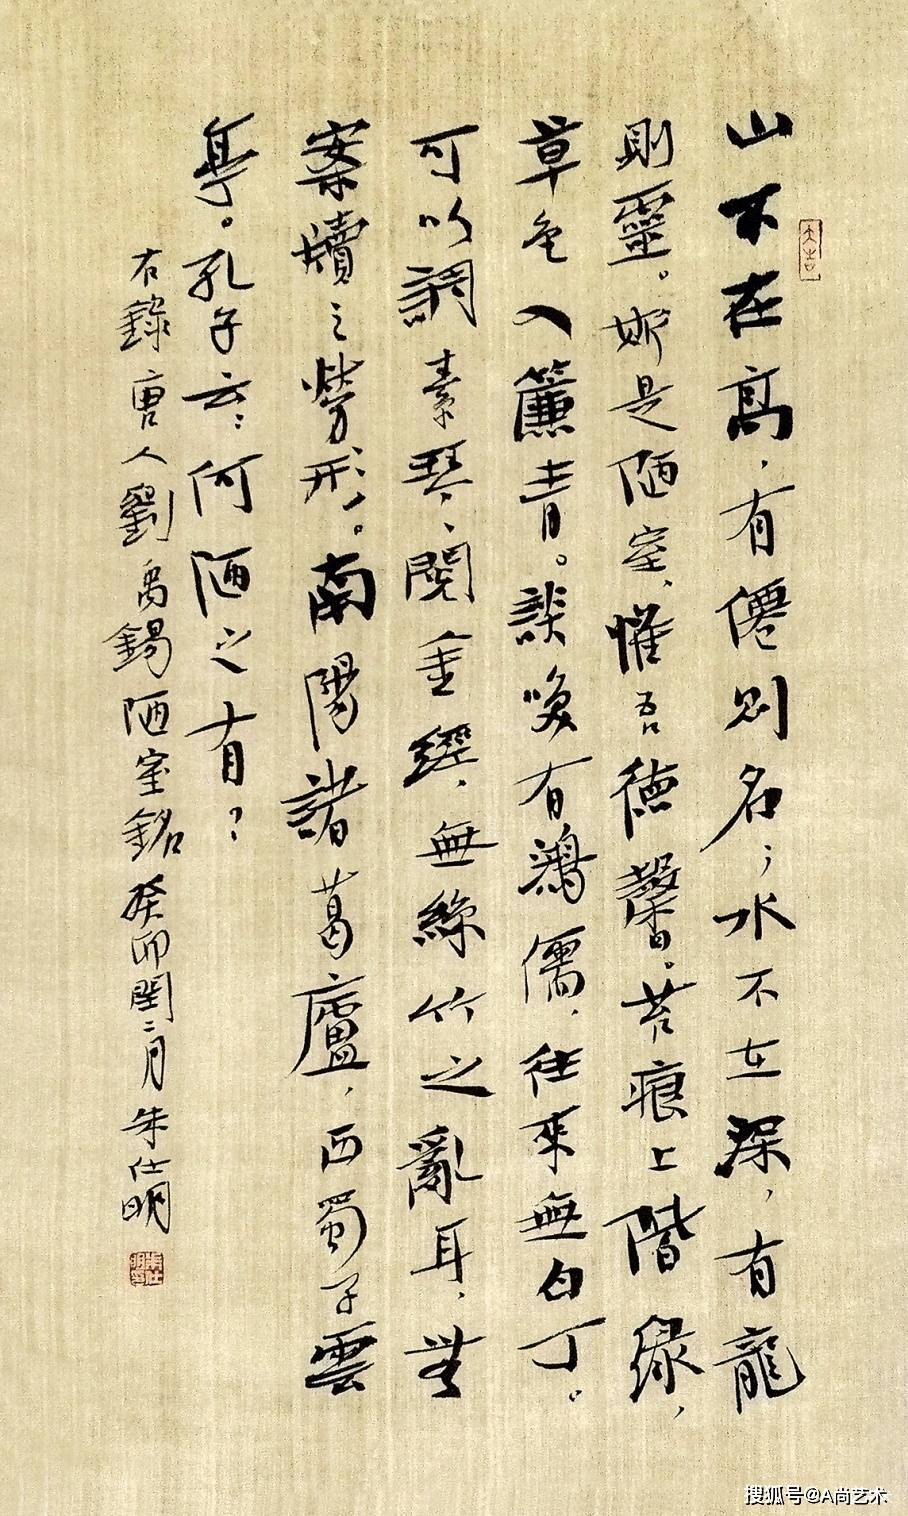 山不在高，有僊則名；水不在深，有龍
則靈。斯是陋室，惟吾德馨。苔痕上階綠，
草色入簾青。談笑有鴻儒，往來無白丁。
可以調素琴、閱金經，無絲竹之亂耳，無
案牘之勞形。南陽諸葛廬，西蜀子雲
亭。孔子云：何陋之有？
右錄唐人劉禹錫陋室銘癸卯閏二月朱仕明
大吉
搜狐号@A尚艺术